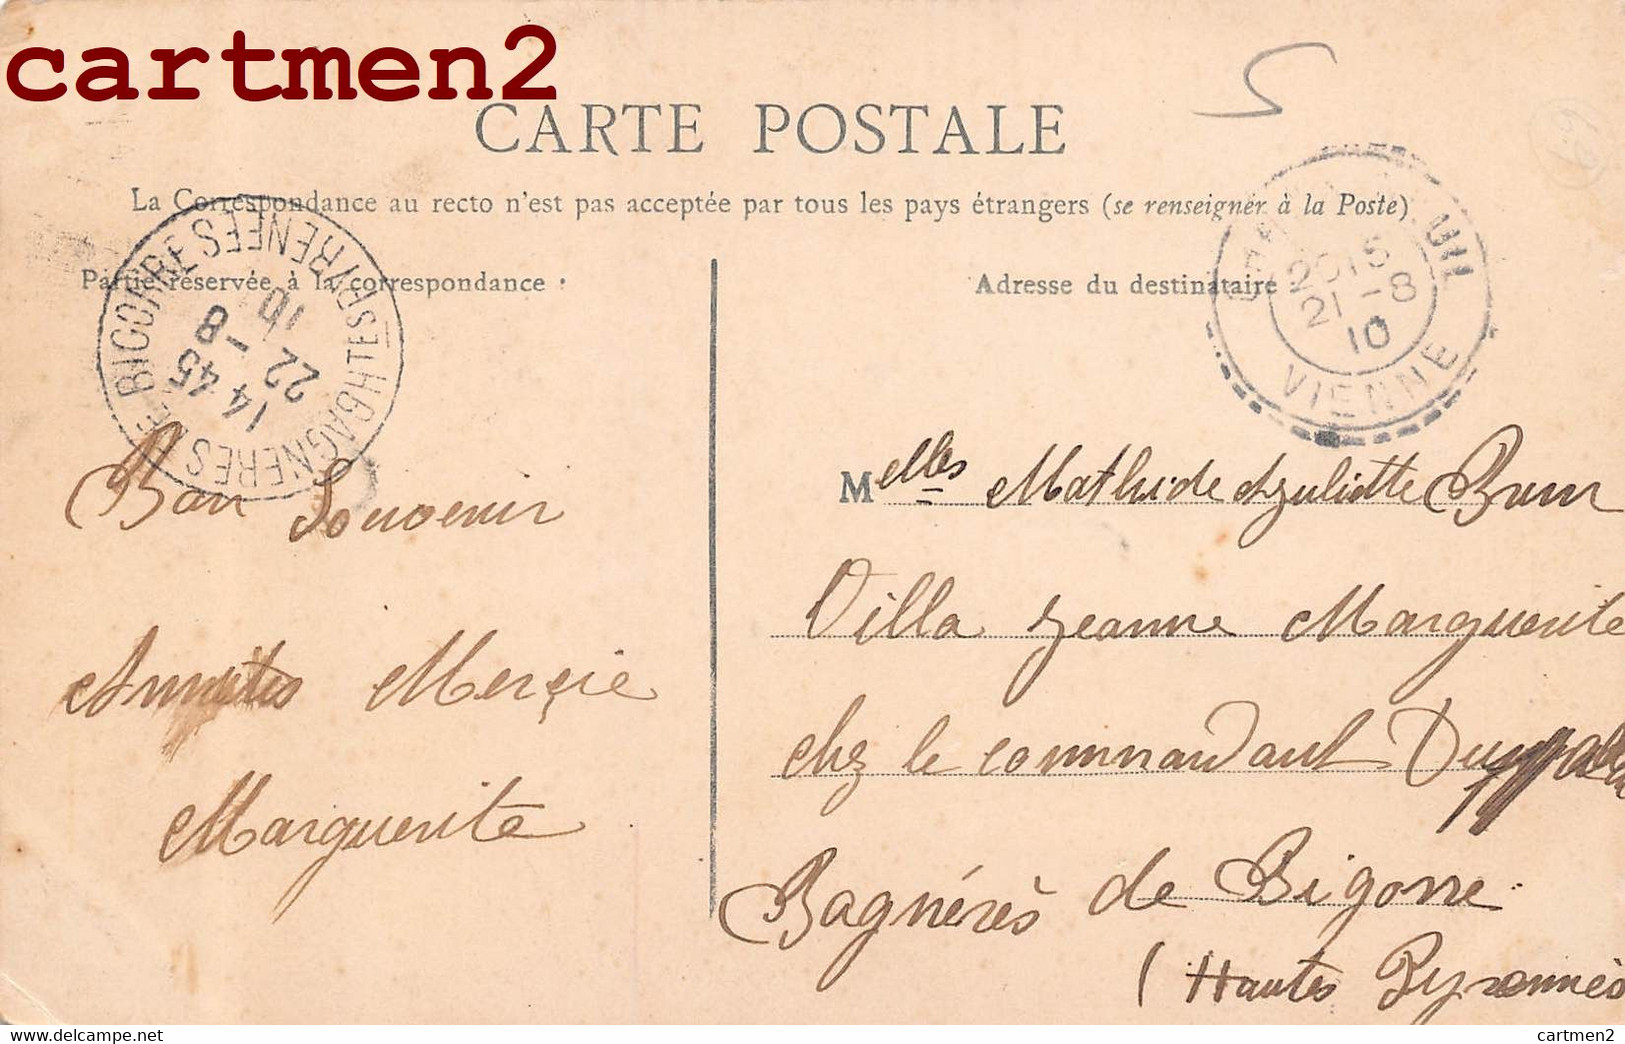 cartmen2
CARTE POSTALE
La Correspondance au recto n'est pas acceptée par tous les pays étrangers (se renseigner à la Poste)
Partie réservée à la correspondance :
Adresse du destinataire
BAGNERES DE BIGORRE
HTES PYRENEES
14 45
22 -8
10
20 15
21 -8
10
VIENNE
Bon Souvenir
Amitiés Mercie
Marguerite
Melles Mathide & Juliette Brun
Villa Jeanne Marguerite
chez le commandant
Bagnérès de Bigorre
(Hautes Pyrennées
cartmen2